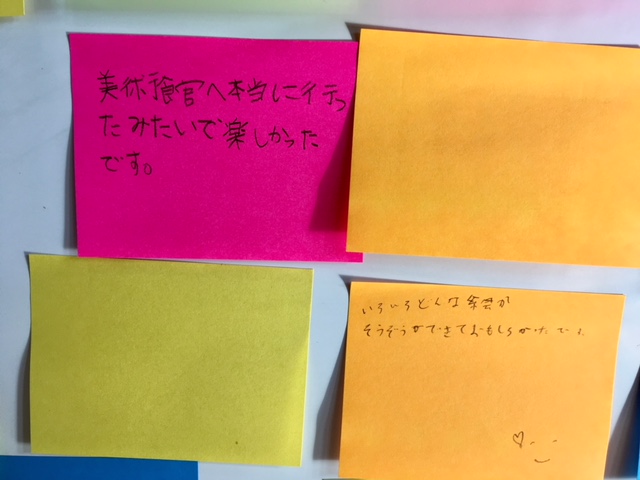 美休飡官へ本当に行っ
たみたいで楽しかった
です。
いろいろどんな絵が
そうぞうができておもしろかったです